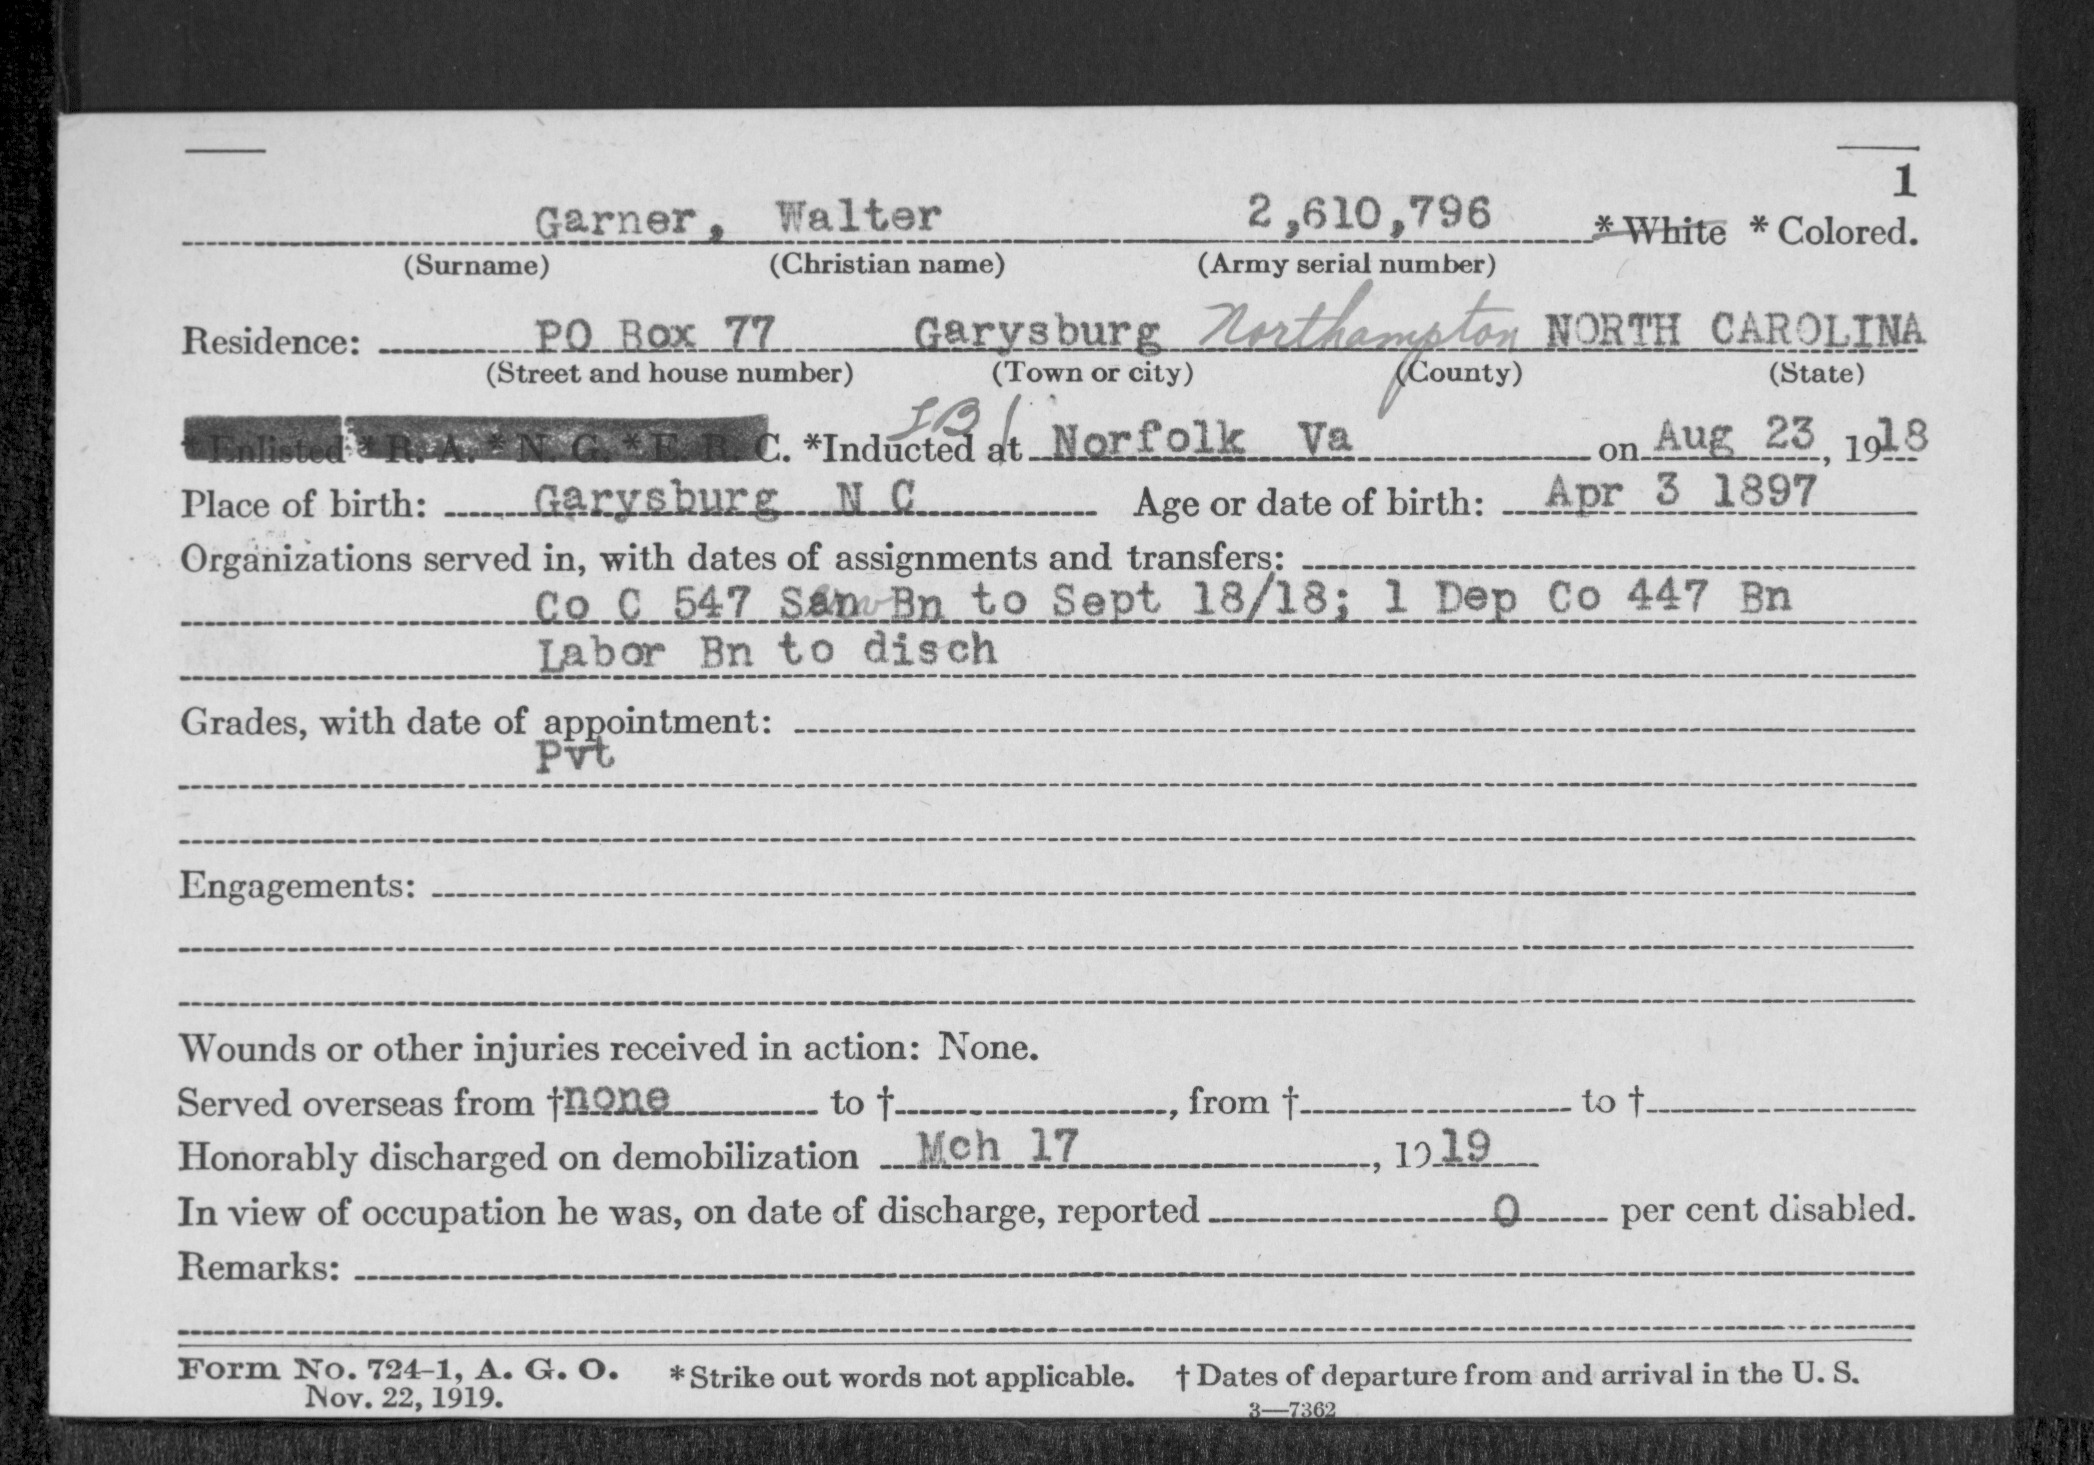 1
Garner, Walter 2,610,796 * White * Colored.
(Surname) (Christian name) (Army serial number)
Residence: PO Box 77 Garysburg Northampton NORTH CAROLINA
(Street and house number) (Town or city) (County) (State)
* Enlisted * R. A. * N. G. * E. R. C. *Inducted at LB / Norfolk Va on Aug 23, 1918
Place of birth: Garysburg N C Age or date of birth: Apr 3 1897
Organizations served in, with dates of assignments and transfers:
Co C 547 Bn to Sept 18/18; 1 Dep Co 447 Bn
Labor Bn to disch
Grades, with date of appointment:
Pvt
Engagements:
Wounds or other injuries received in action: None.
Served overseas from †none to †, from † to †
Honorably discharged on demobilization Mch 17, 1919
In view of occupation he was, on date of discharge, reported 0 per cent disabled.
Remarks:
Form No. 724-1, A. G. O. * Strike out words not applicable. † Dates of departure from and arrival in the U. S.
Nov. 22, 1919.
3—7362